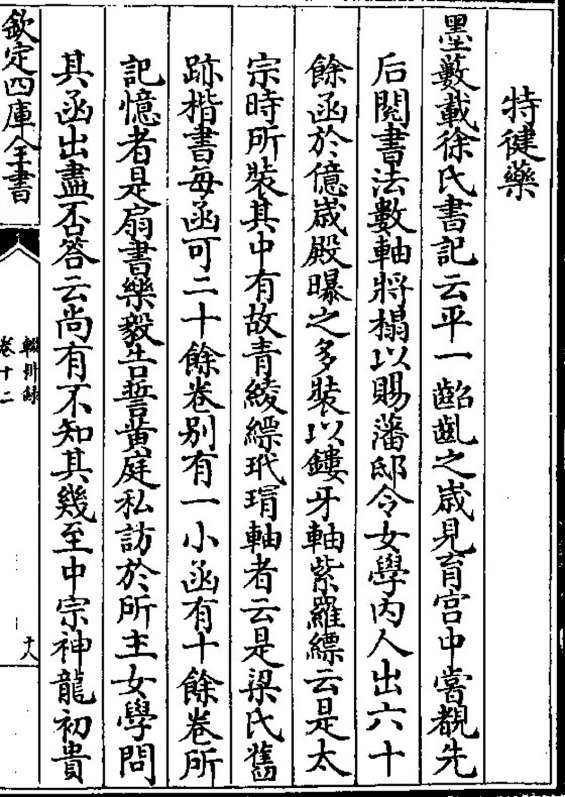 特健藥
墨藪載徐氏書記云平一齠齓之歲見育宫中嘗覩先
后閱書法數軸將搨以賜藩邸令女學内人出六十
餘函於億歲殿曝之多裝以鏤牙軸紫羅縹云是太
宗時所裝其中有故青綾縹玳瑁軸者云是梁氏舊
跡楷書每函可二十餘卷别有一小函有十餘卷所
記憶者是扇書樂毅告誓黄庭私訪於所主女學問
其函出盡否答云尚有不知其幾至中宗神龍初貴
欽定四庫全書
輟耕録
卷十二
十八